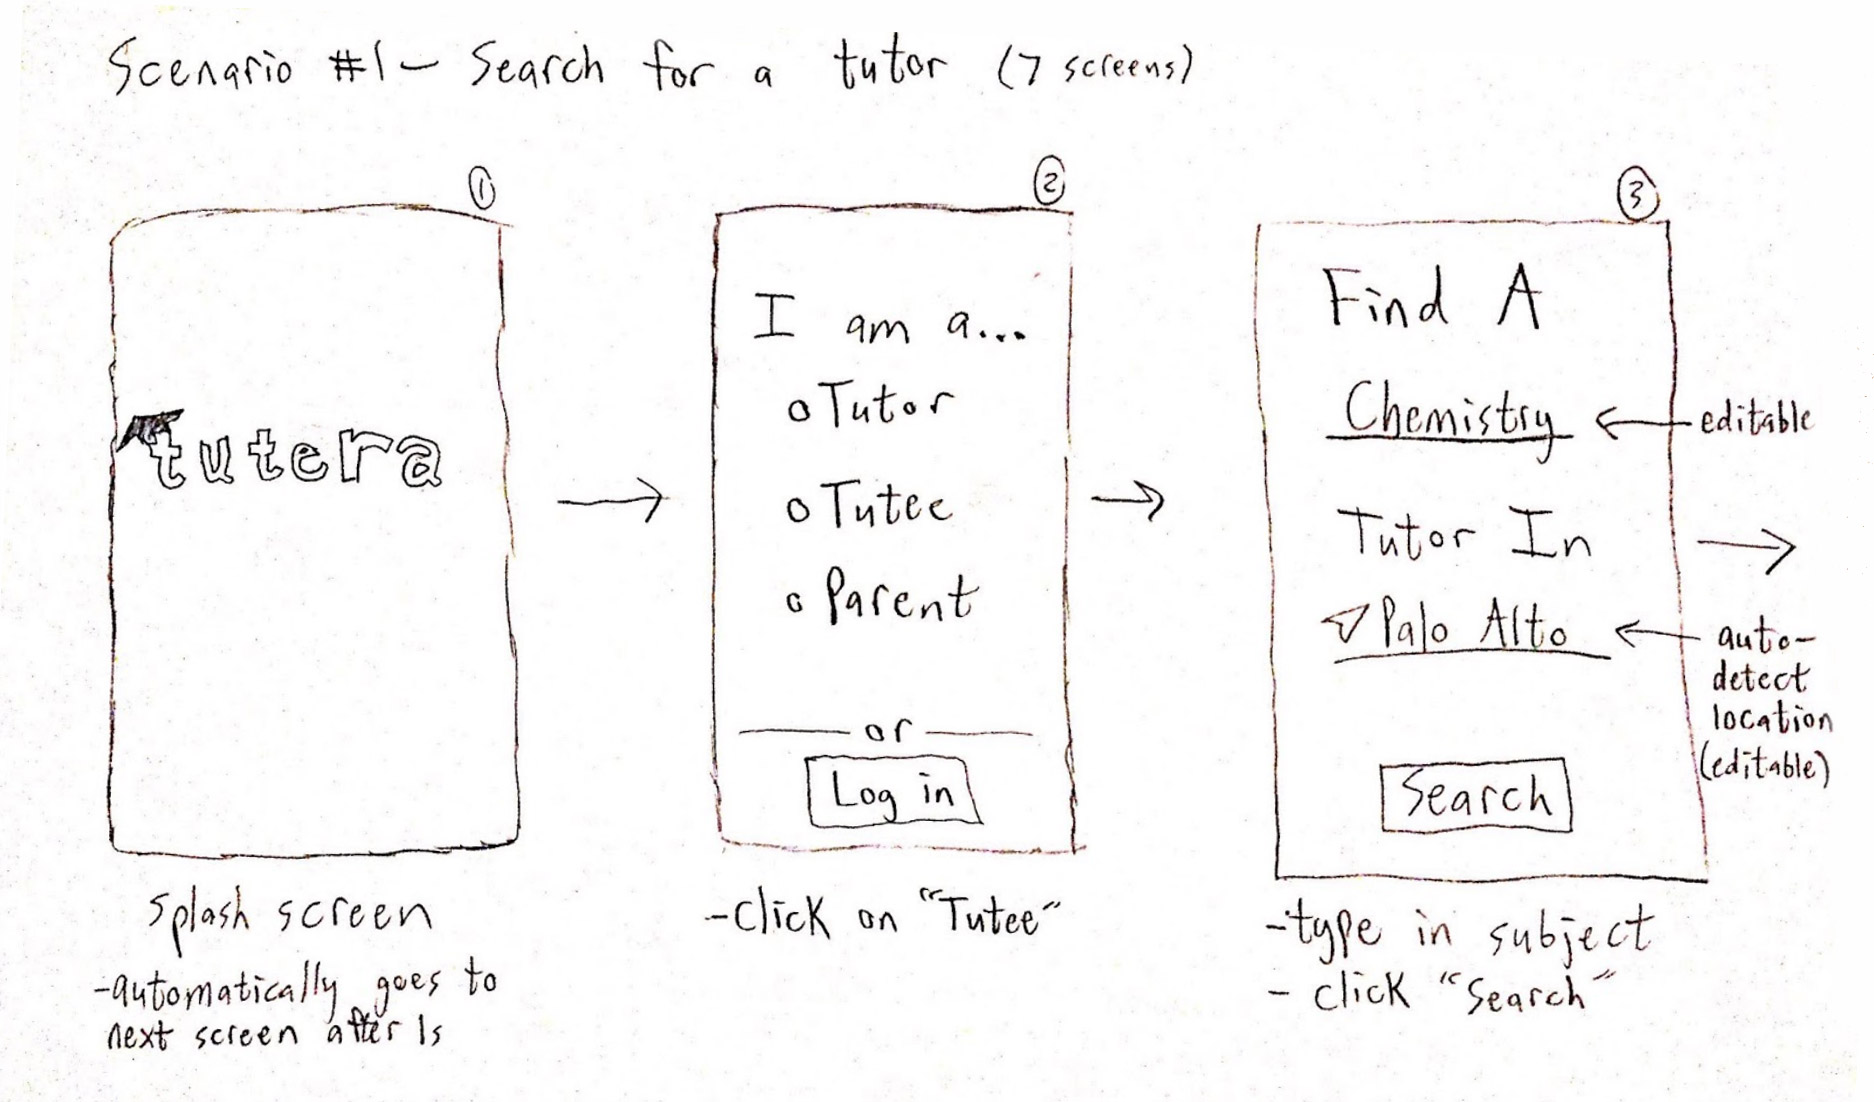 Scenario #1 – Search for a tutor (7 screens)
①
tutera
splash screen
-automatically goes to
next screen after 1s
②
I am a...
o Tutor
o Tutee
o Parent
or
Log in
-click on "Tutee"
③
Find A
Chemistry
editable
Tutor In
Palo Alto
auto-
detect
location
(editable)
Search
-type in subject
- click "Search"